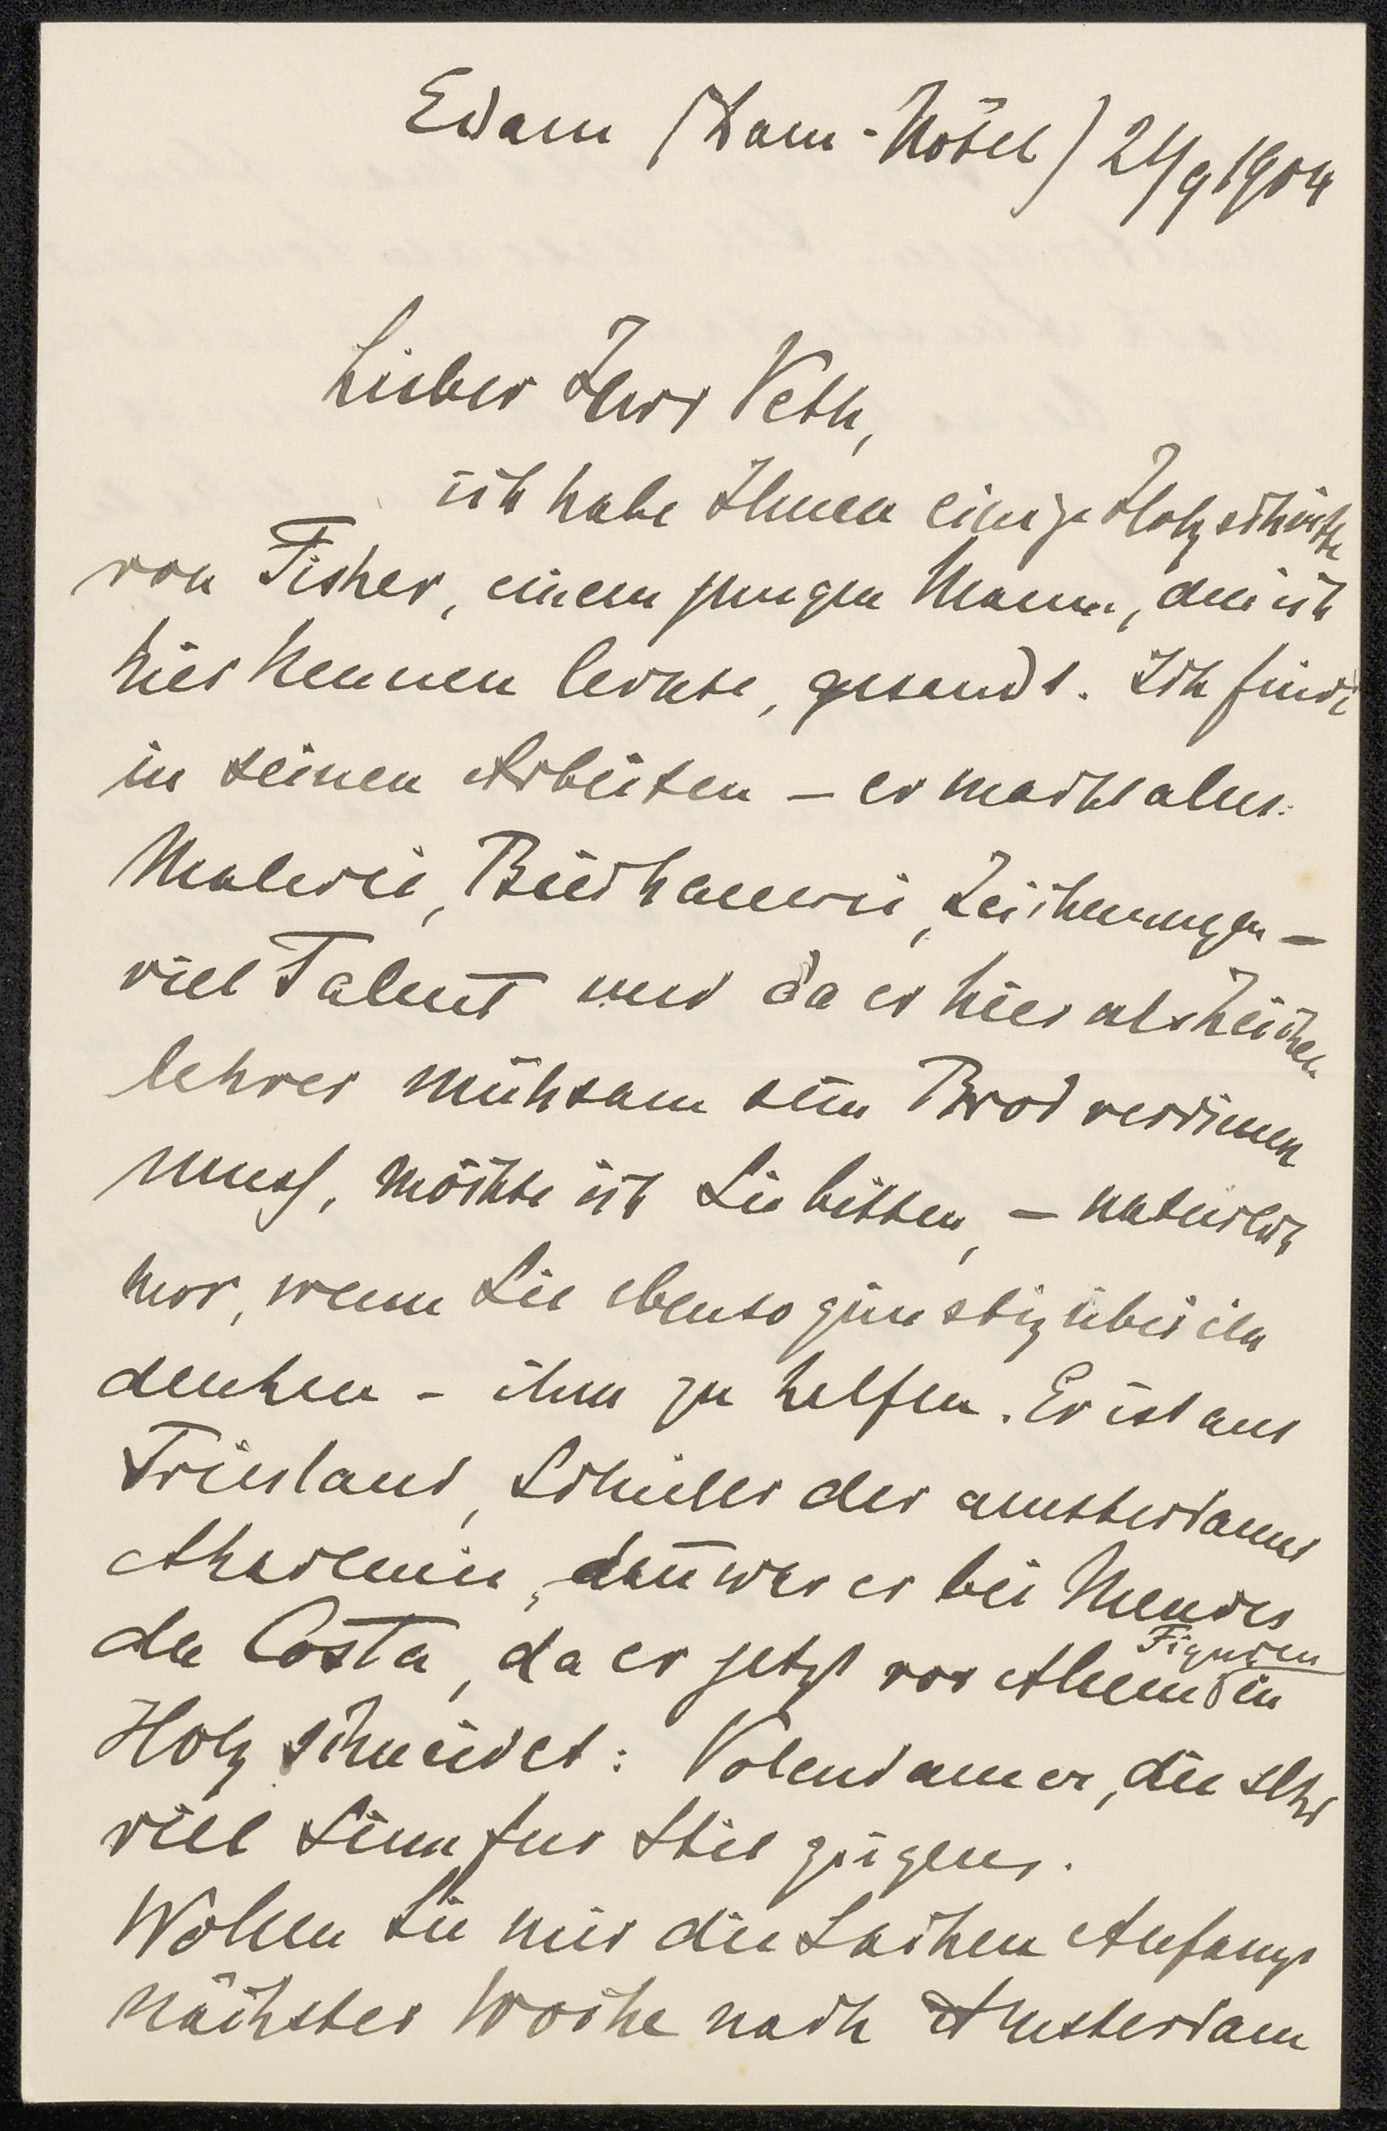 Edam (Dam-Hôtel) 21/9 1904
Lieber Herr Veth,
ich habe Ihnen einige Holzschnitte
von Fisher, einem jungen Mann, den ich
hier kennen lernte, gesandt. Ich finde
in seinen Arbeiten – er macht alles:
Malerei, Bildhauerei, Zeichnungen –
viel Talent und da er hier als Zeichen-
lehrer mühsam sein Brod verdienen
muss, möchte ich Sie bitten, – natürlich
nur, wenn Sie ebenso günstig über ihn
denken – ihm zu helfen. Er ist aus
Friesland, Schüler der amsterdamer
Akademie, dann war er bei Mendes
da Costa, da er jetzt vor Allem Figuren in
Holz schneidet: Volendamer, die sehr
viel Sinn fur Stil zeigen.
Wollen Sie mir die Sachen Anfangs
nächster Woche nach Amsterdam